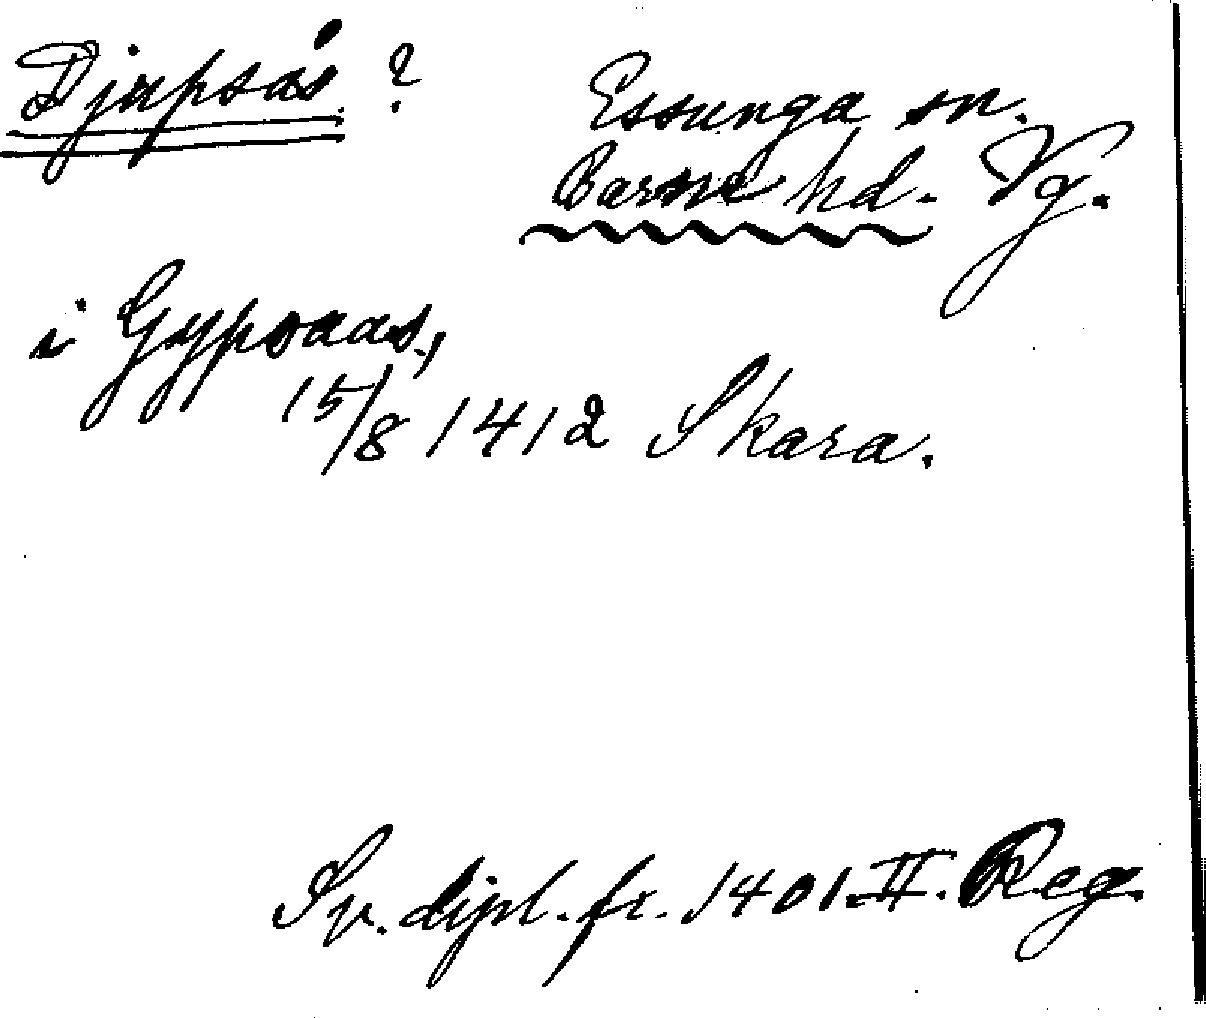 Djupsås ?
Essunga sn.
Barne hd. Vg.
i Gypsaas,
15/8 1412 Skara.
Sv. dipl. fr. 1401. II. Reg.